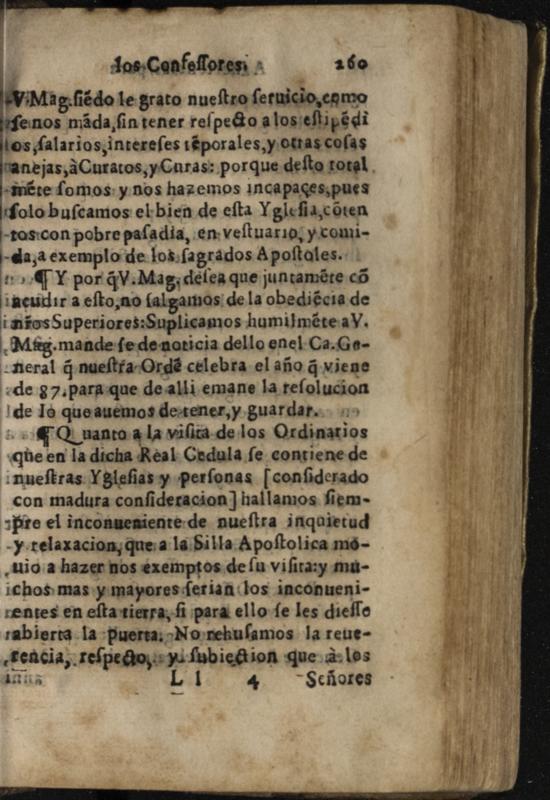 los Confeſſores. 260
V. Mag. ſiẽdo le grato nueſtro ſeruicio, como
ſe nos mãda, ſin tener reſpecto a los eſtipẽdi
os, ſalarios, intereſes tẽporales, y otras coſas
anejas, à Curatos, y Curas: porque deſto total
mẽte ſomos y nos hazemos incapaçes, pues
ſolo buſcamos el bien de eſta Ygleſia, cõten
tos con pobre paſadia, en veſtuario, y comi-
da, a exemplo de los ſagrados Apoſtoles.
¶ Y por q̃ V. Mag. deſea que juntamẽte cõ
acudir a eſto, no ſalgamos de la obediẽcia de
nr̃os Superiores: Suplicamos humilmẽte a V.
Mag. mande ſe de noticia dello en el Ca. Ge-
neral q̃ nueſtra Ordẽ celebra el año q̃ viene
de 87. para que de alli emane la reſolucion
de lo que auemos de tener, y guardar.
¶ Quanto a la viſita de los Ordinarios
que en la dicha Real Cedula ſe contiene de
nueſtras Ygleſias y perſonas [conſiderado
con madura conſideracion] hallamos ſiem-
pre el inconueniente de nueſtra inquietud
y relaxacion, que a la Silla Apoſtolica mo-
uio a hazer nos exemptos de ſu viſita: y mu-
chos mas y mayores ſerian los inconueni-
entes en eſta tierra, ſi para ello ſe les dieſſe
abierta la puerta. No rehuſamos la reue-
rencia, reſpecto, y ſubiection que à los
L l 4 Señores